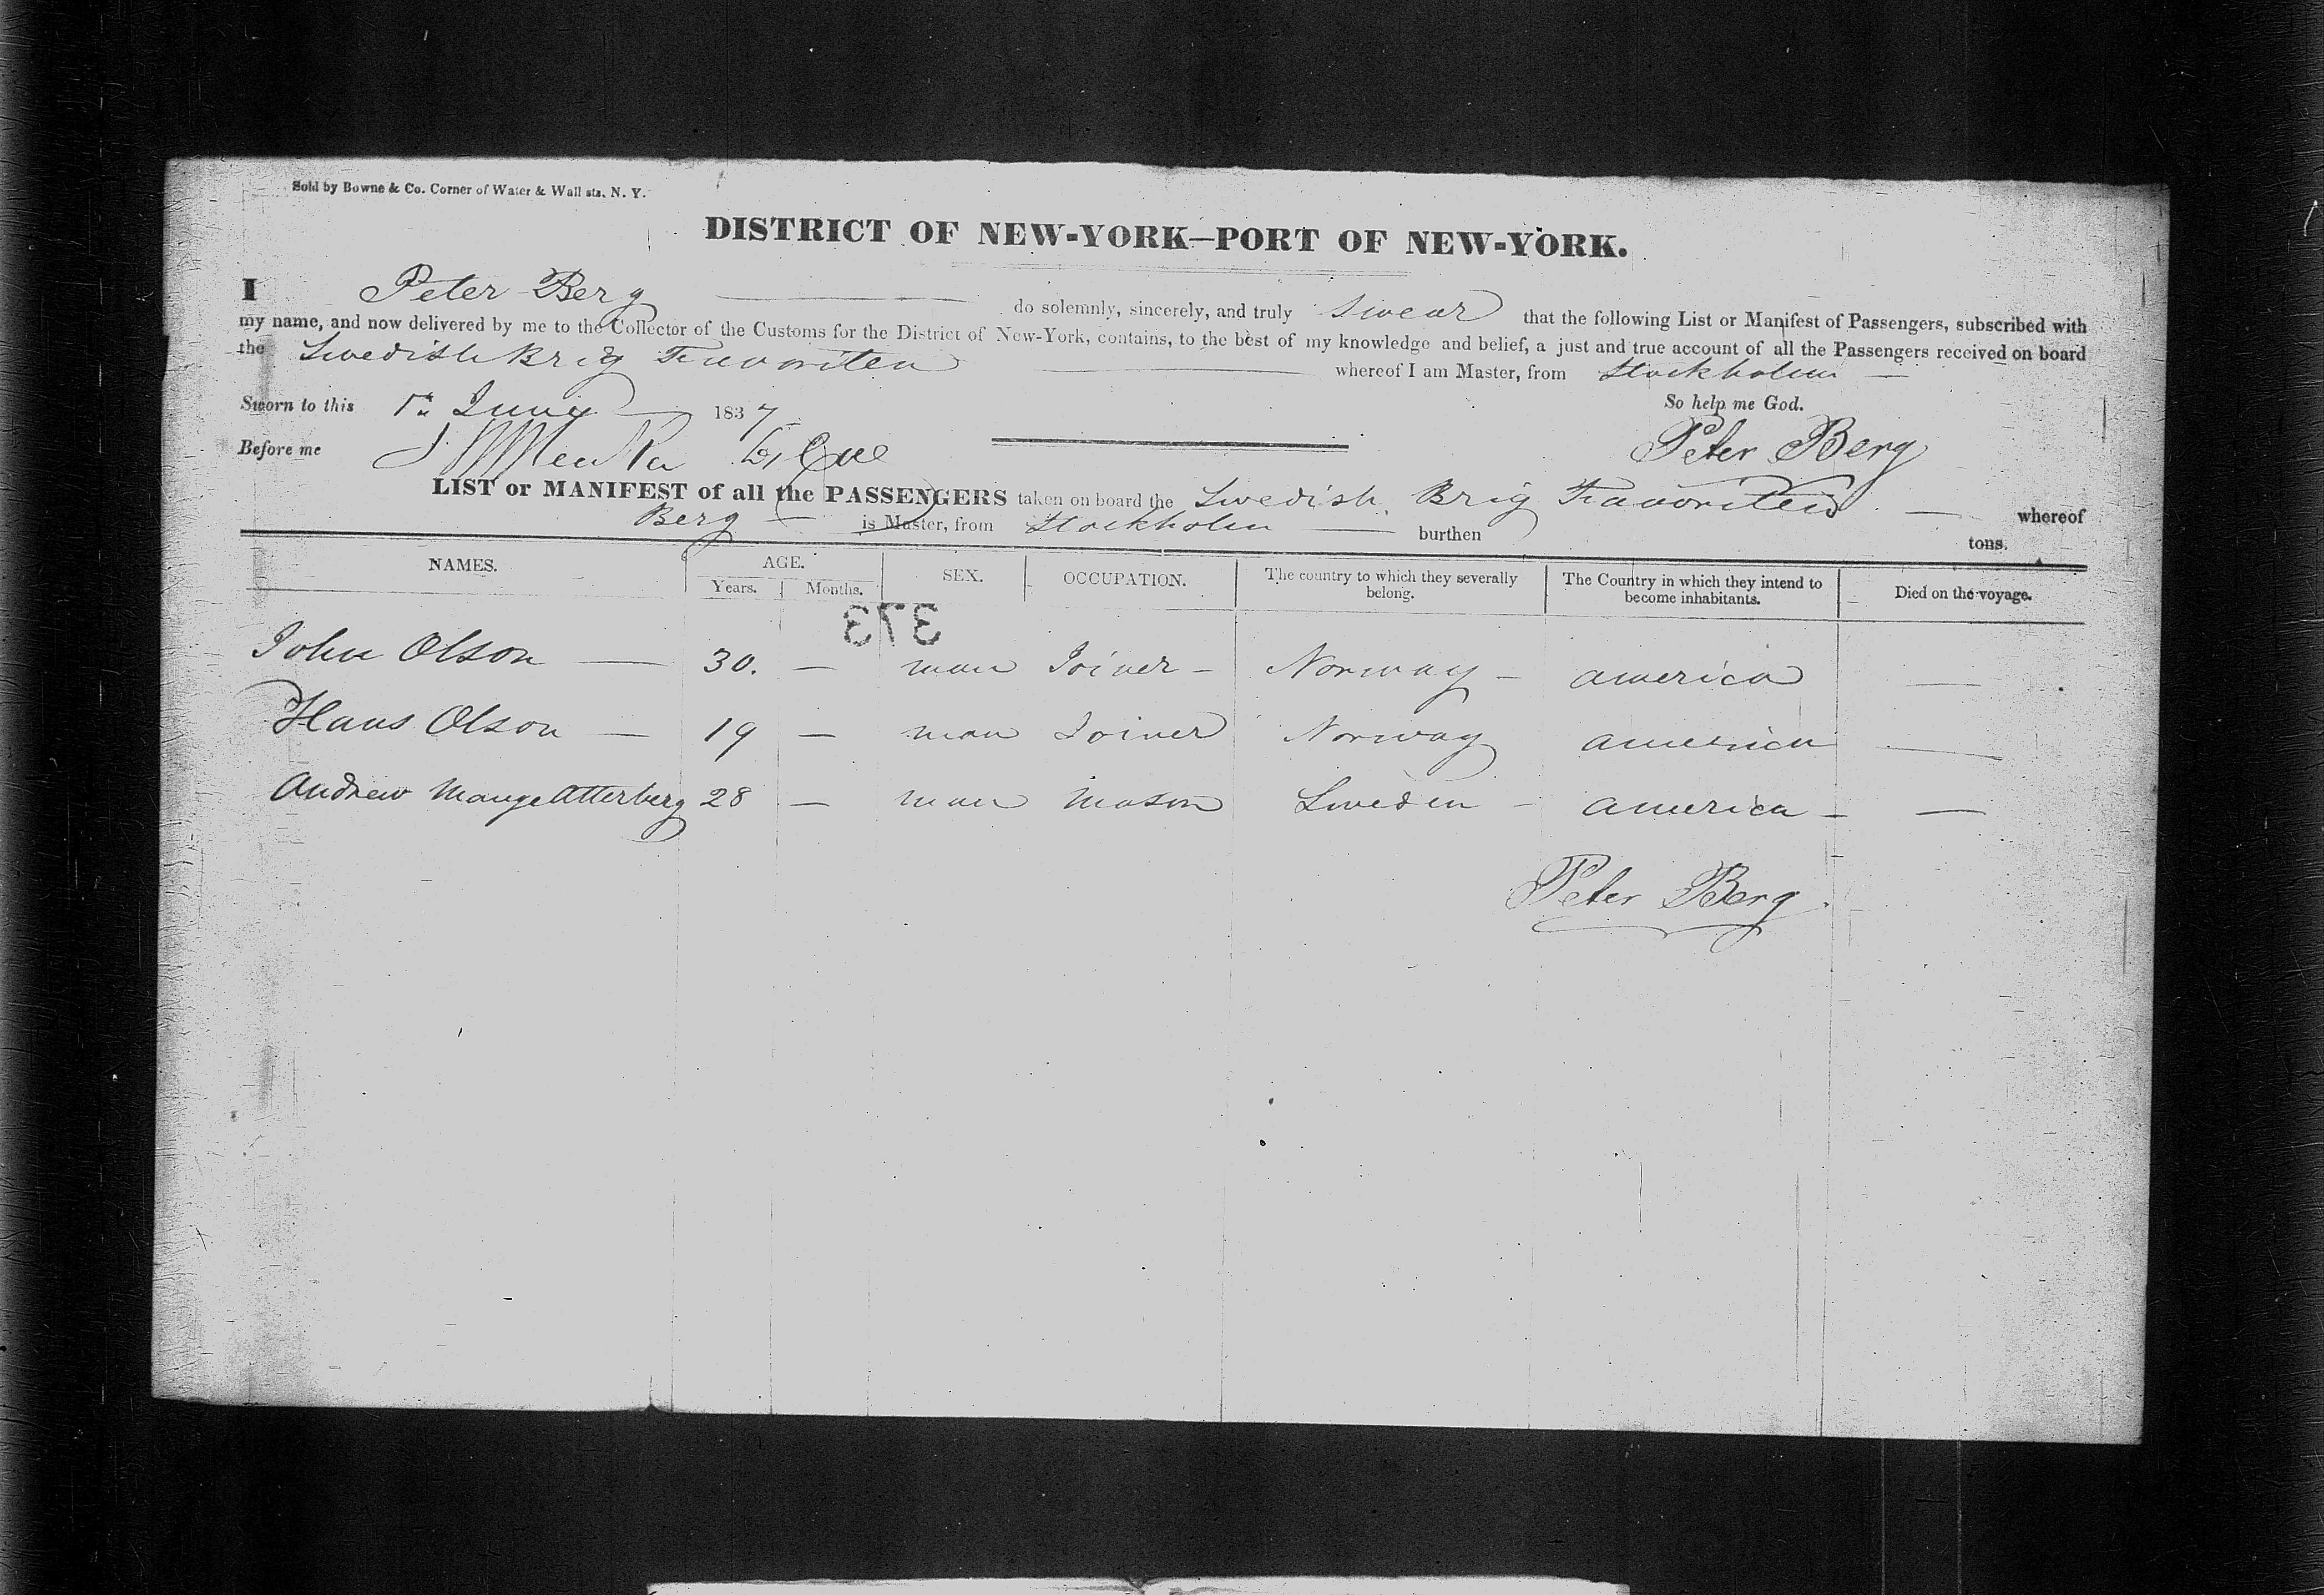 Sold by Bowne & Co. Corner of Water & Wall sts. N. Y.
DISTRICT OF NEW-YORK—PORT OF NEW-YORK.
I Peter Berg do solemnly, sincerely, and truly swear that the following List or Manifest of Passengers, subscribed with
my name, and now delivered by me to the Collector of the Customs for the District of New-York, contains, to the best of my knowledge and belief, a just and true account of all the Passengers received on board
the Swedish Brig Favoriten whereof I am Master, from Stockholm —
Sworn to this 1st June 1837 So help me God.
Before me Peter Berg
LIST or MANIFEST of all the PASSENGERS taken on board the Swedish Brig Favoriten — whereof
Berg — is Master, from Stockholm — burthen tons.
NAMES. AGE. SEX. OCCUPATION. The country to which they severally belong. The Country in which they intend to become inhabitants. Died on the voyage.
Years. Months.
373
John Olson — 30. — man Joiner — Norway — america —
Hans Olson — 19 — man Joiner Norway america —
Andrew Mange Atterberg 28 — man mason Sweden — america — —
Peter Berg.